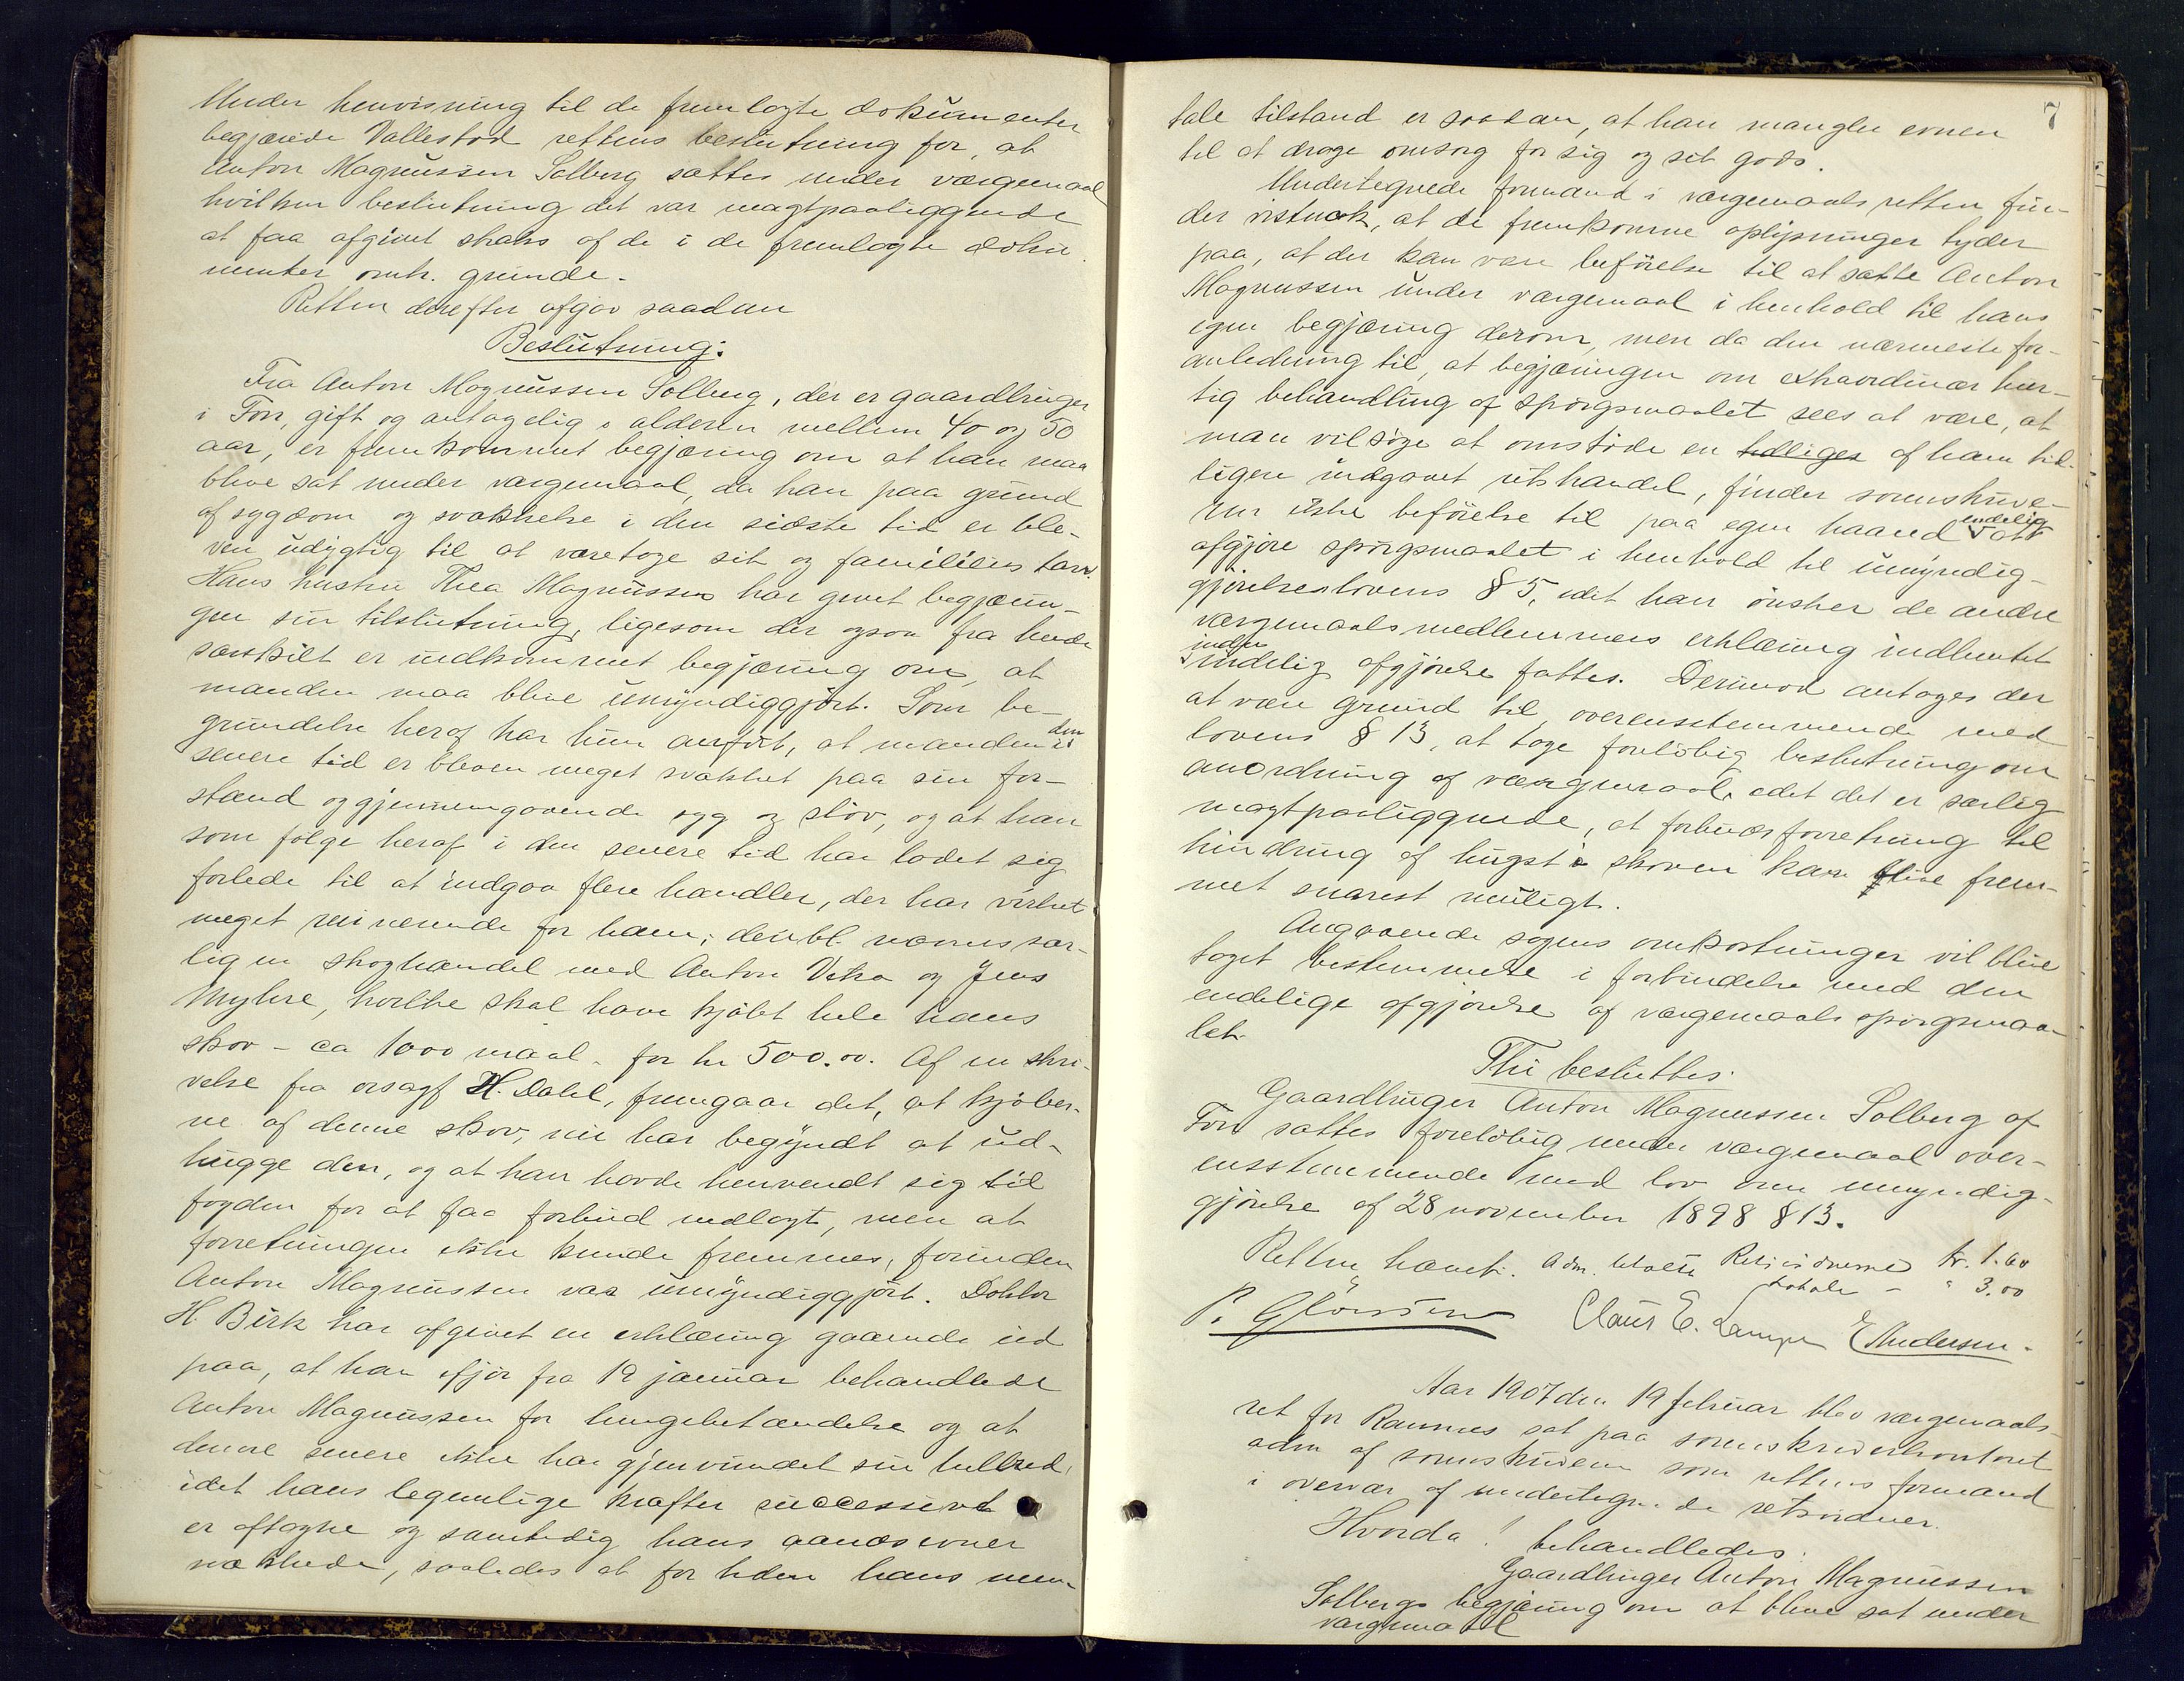 Under henvisning til de fremlagte dokumenter
begjærede Vallestad rettens beslutning for, at
Anton Magnussen Solberg sættes under værgemaal
hvilken beslutning det var magtpaaliggende
at faa afgivet straks af de i de fremlagte doku-
menter omh. grunde.
Retten derefter afgav saadan
Beslutning:
Fra Anton Magnussen Solberg, der er gaardbruger
i Fon, gift og antagelig i alderen mellem 40 og 50
aar, er fremkommet begjæring om at han maa
blive sat under værgemaal, da han paa grund
af sygdom og svækkelse i den sidste tid er ble-
ven udygtig til at varetage sit og familiens tarv.
Hans hustru Thea Magnussen har givet begjærin-
gen sin tilslutning, ligesom der ogsaa fra hende
særskilt er indkommet begjæring om, at
manden maa blive umyndiggjort. Som be-
grundelse heraf har hun anført, at manden i den
senere tid er bleven meget svækket paa sin for-
stand og gjennemgaaende syg og sløv, og at han
som følge heraf i den senere tid har ladet sig
forlede til at indgaa flere handler, der har virket
meget ruinerende for ham; deribl. nævnes sær-
lig en skoghandel med Anton Veka og Jens
Myhre, hvilke skal have kjøbt hele hans
skov - ca 1000 maal - for kr 500.00. Af en skri-
velse fra orsagf H. Dahl, fremgaar det, at kjøber-
ne af denne skov, nu har begyndt at ud-
hugge den, og at han havde henvendt sig til
fogden for at faa forbud nedlagt, men at
forretningen ikke kunde fremmes, forinden
Anton Magnussen var umyndiggjort. Doktor
H. Birk har afgivet en erklæring gaaende ud
paa, at han ifjor fra 19 januar behandlede
Anton Magnussen for lungebetændelse og at
denne senere ikke har gjenvundet sin helbred,
idet hans legemlige kræfter successivt
er aftagne og samtidig hans aandsevner
svækkede, saaledes at for tiden hans men-
7
tale tilstand er saadan, at han mangler evnen
til at drage omsorg for sig og sit gods.
Undertegnede formand i værgemaalsretten fin-
der vistnok, at de fremkomne oplysninger tyder
paa, at der kan være beføielse til at sætte Anton
Magnussen under værgemaal i henhold til hans
egen begjæring derom, men da den nærmeste for-
anledning til, at begjæringen om extraordinær hur-
tig behandling af spørgsmaalet sees at være, at
man vil søge at omstøde en tidligere af ham tid-
ligere indgaaet retshandel, finder sorenskrive-
ren ikke beføielse til paa egen haand endelig at
afgjøre spørgsmaalet i henhold til umyndig-
gjørelseslovens § 5, idet han ønsker de andre
værgemaalsmedlemmers erklæring indhentet
inden endelig afgjørelse fattes. Derimod antages der
at være grund til, overensstemmende med
lovens § 13, at tage foreløbig beslutning om
anordning af værgemaal, idet det er særlig
magtpaaliggende, at forbudsforretning til
hindring af hugst i skoven kan blive frem-
met snarest muligt.
Angaaende sagens omkostninger vil blive
taget bestemmelse i forbindelse med den
endelige afgjørelse af værgemaalsspørgsmaa-
let.
Thi besluttes:
Gaardbruger Anton Magnussen Solberg af
Fon sættes foreløbig under værgemaal over-
ensstemmende med lov om umyndig-
gjørelse af 28 november 1898 § 13.
Retten hævet. Adm. betalte Retsvidnerne kr. 1.60
Lokale - " 3.00
Claus E. Lampe E Andersen.
Aar 1907 den 19 februar blev værgemaals-
ret for Ramnes sat paa sorenskriverkontoret
adm af sorenskriveren som rettens formand
i overvær af undertegnede retsvidner.
Hvorda! behandledes:
Gaardbruger Anton Magnussen
Solbergs begjæring om at blive sat under
værgemaal